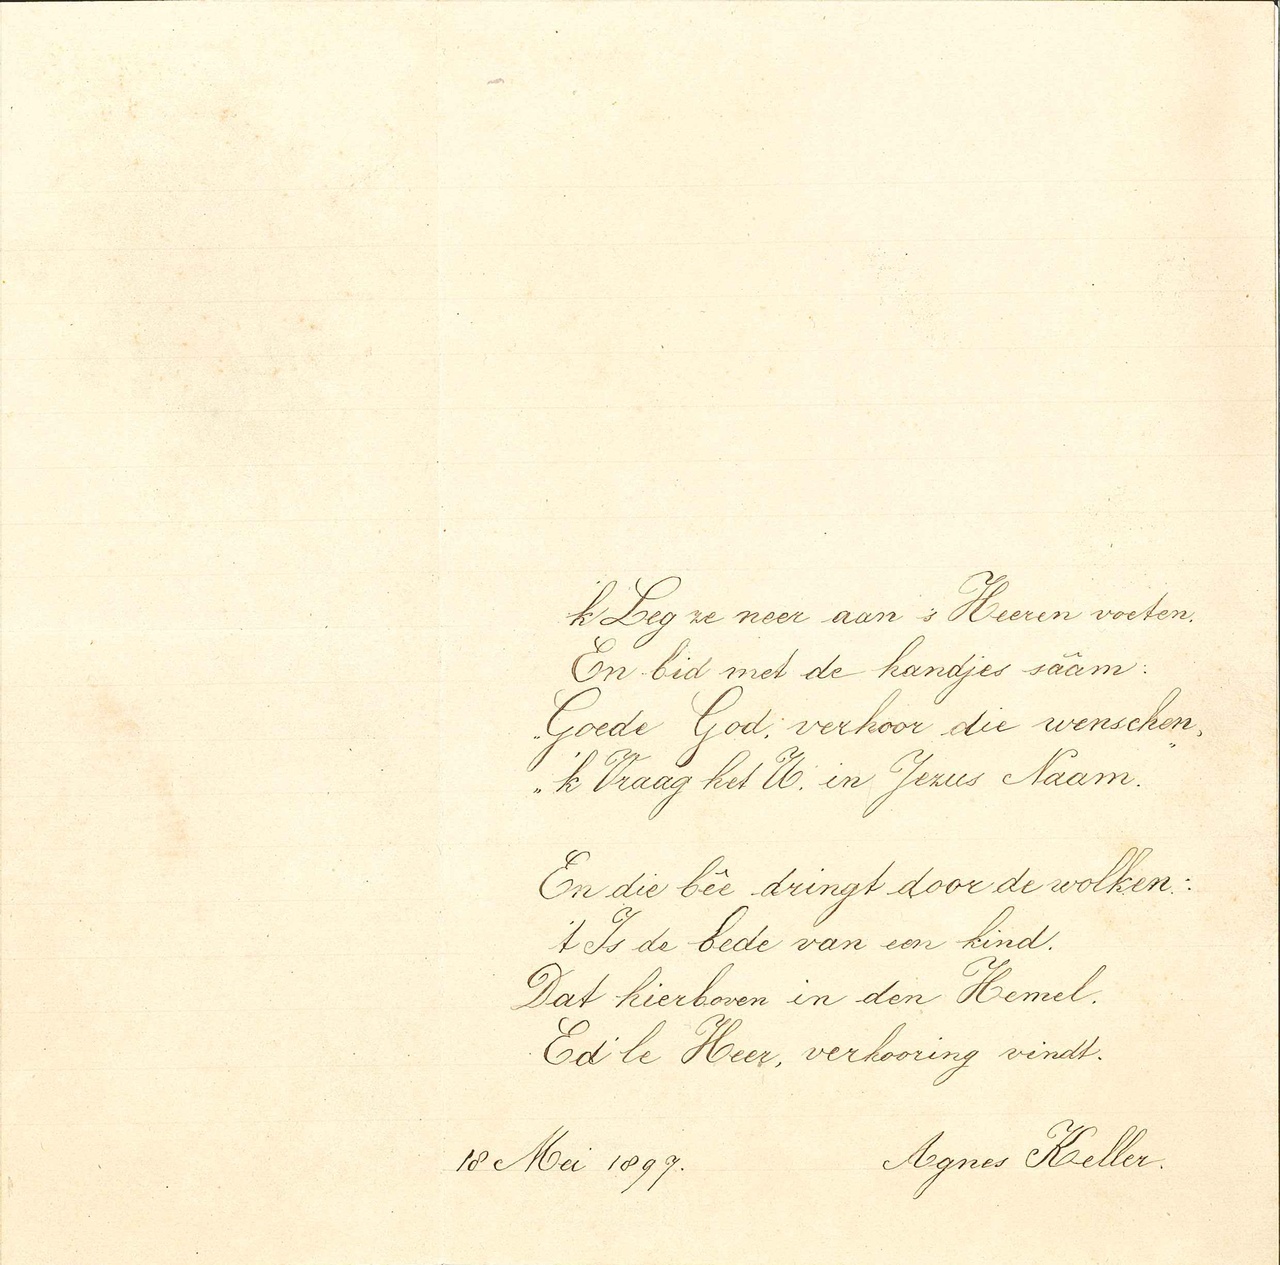 'k Leg ze neer aan 's Heeren voeten.
En bid met de handjes sââm:
„Goede God, verhoor die wenschen,"
„'k Vraag het U. in Jezus Naam.
En die bêe dringt door de wolken:
't Is de bede van een kind.
Dat hierboven in den Hemel.
Ed'le Heer, verhooring vindt.
18 Mei 1897. Agnes Keller.